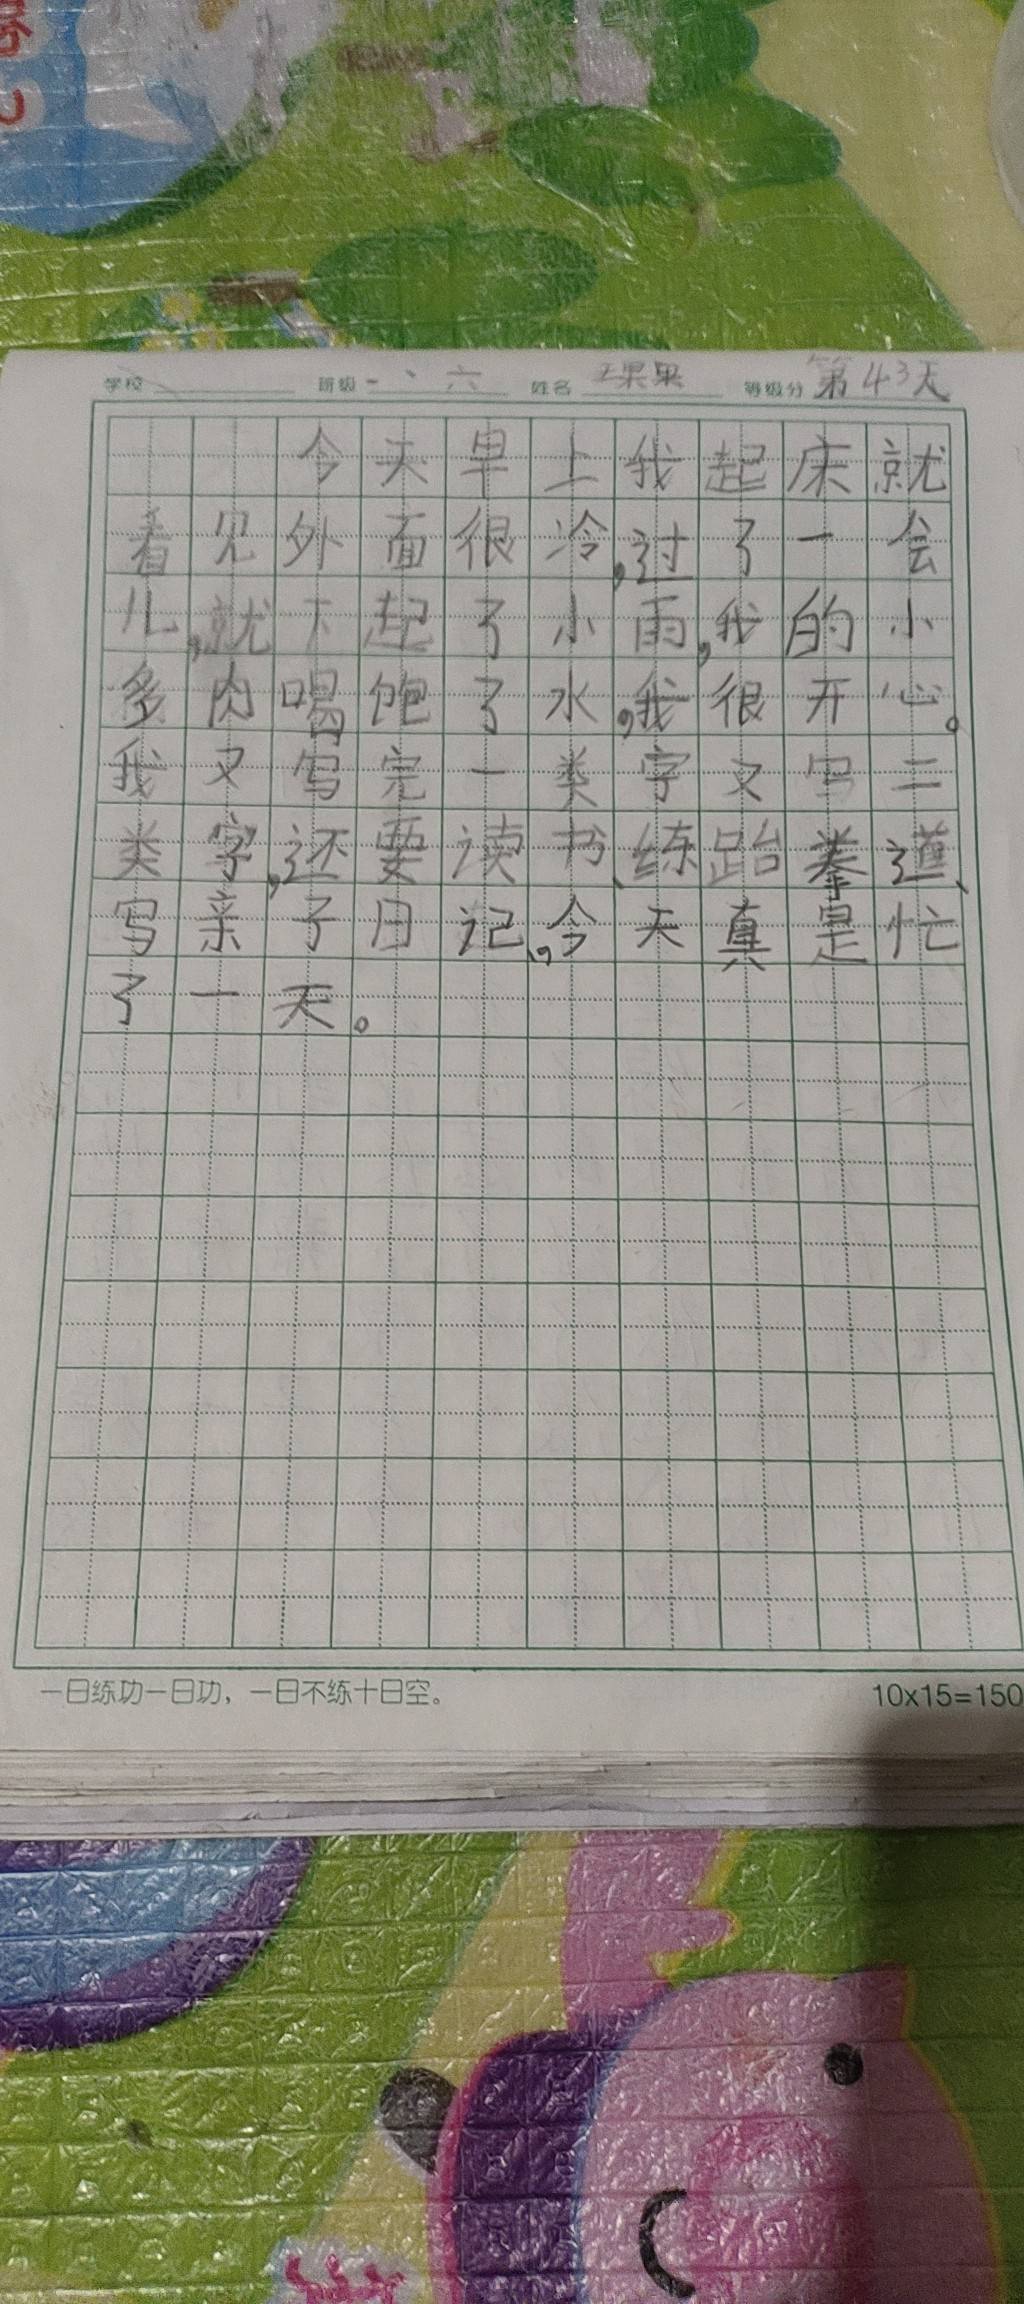 学校 班级 一、六 姓名 王果果 等级分 第43天
今天早上我起床就
看见外面很冷,过了一会
儿,就下起了小雨,我的小
多肉喝饱了水,我很开心。
我又写完一类字又写二
类字,还要读书、练跆拳道、
写亲子日记,今天真是忙
了一天。
一日练功一日功，一日不练十日空。
10x15=150